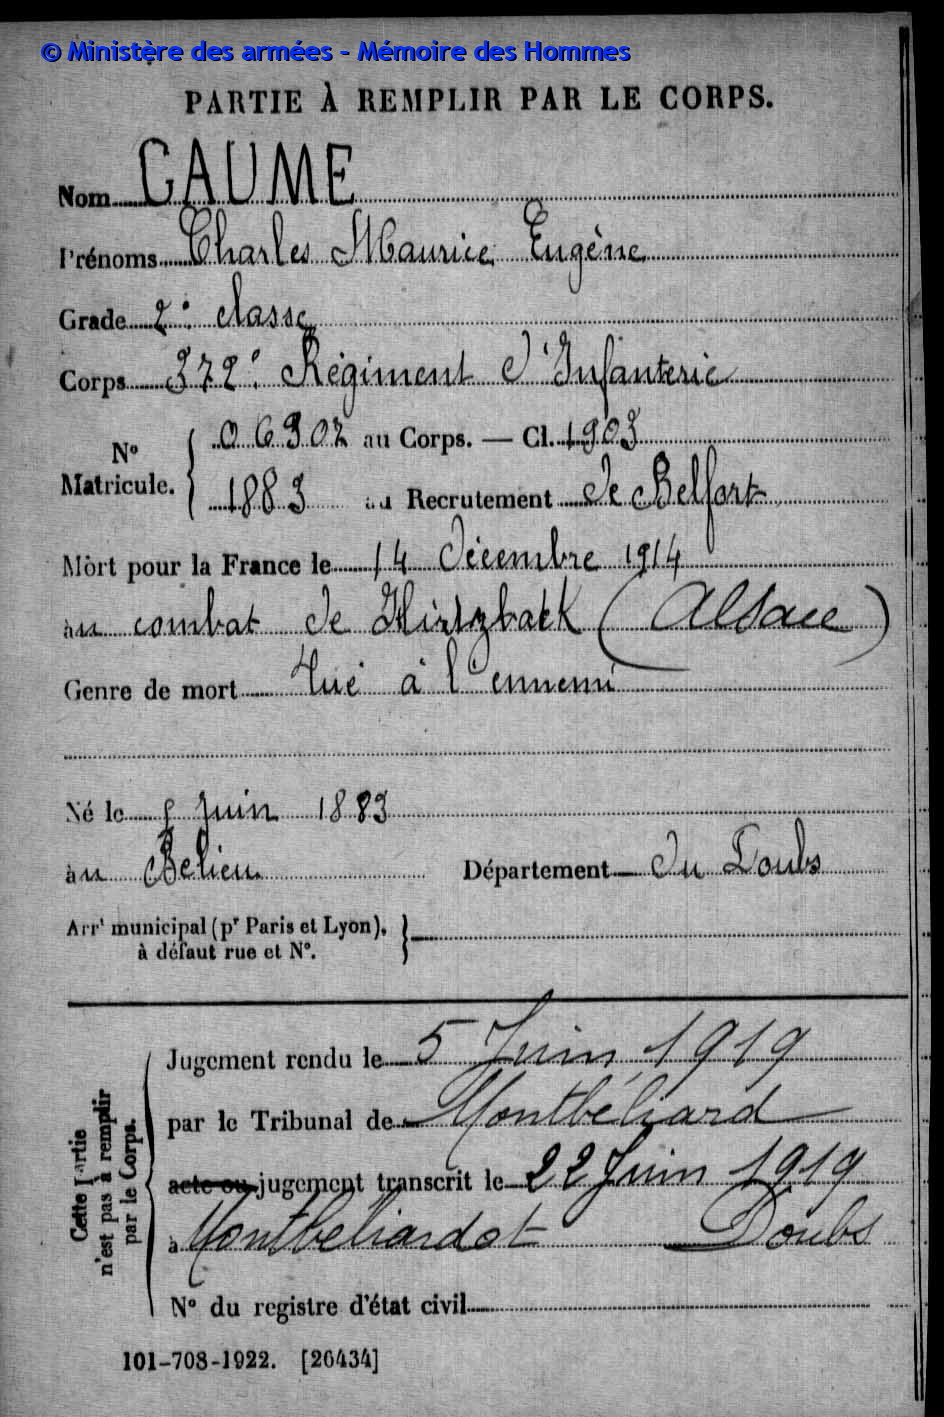 © Ministère des armées - Mémoire des Hommes
PARTIE À REMPLIR PAR LE CORPS.
Nom GAUME
Prénoms Charles Maurice Eugène
Grade 2e classe
Corps 372e Régiment d'Infanterie
N° Matricule. { 06302 au Corps. — Cl. 1903
1883 au Recrutement de Belfort
Mort pour la France le 14 décembre 1914
au combat de Hirtzback (Alsace)
Genre de mort tué à l'ennemi
Né le juin 1883
au Belieu Département du Doubs
Arrt municipal (pr Paris et Lyon),
à défaut rue et N°.
Cette Partie n'est pas à remplir par le Corps.
Jugement rendu le 5 Juin 1919
par le Tribunal de Montbéliard
acte ou jugement transcrit le 22 Juin 1919
à Montbéliardot Doubs
N° du registre d'état civil
101-708-1922. [26434]